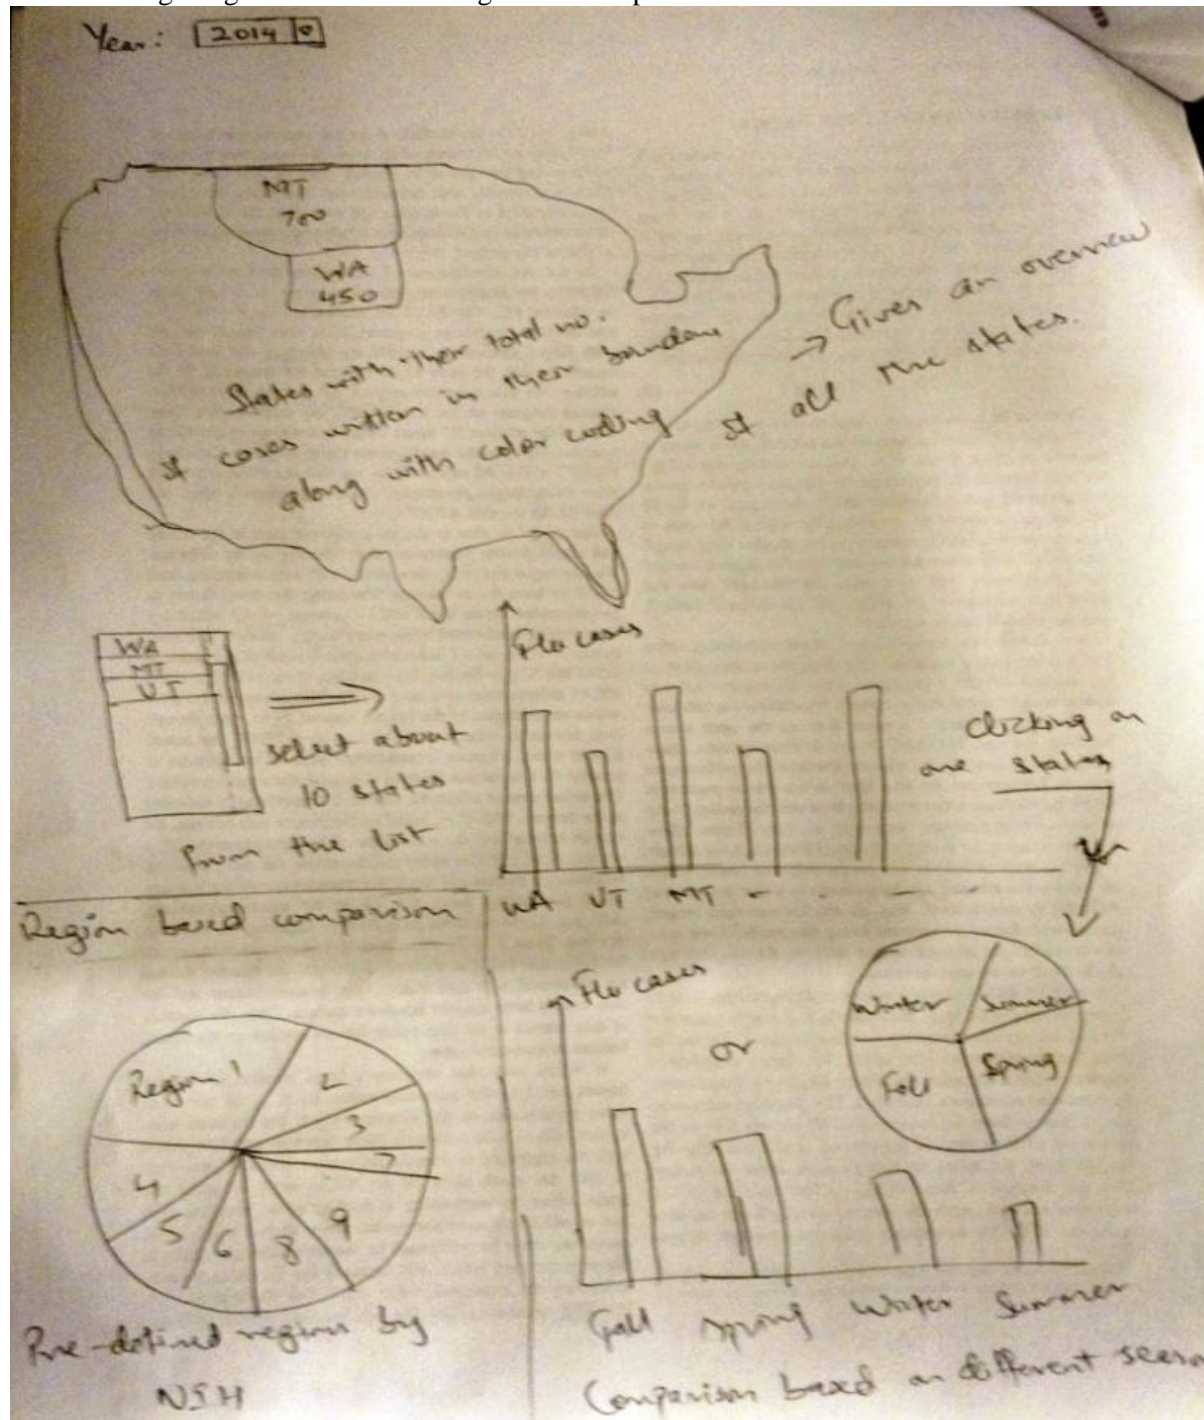 Year: 2014
MT
700
WA
450
States with their total no.
of cases written in their boundary
along with color coding
→ Gives an overview
of all the states.
WA
MT
UT
select about
10 states
from the list
Flu cases
WA UT MT - . - -
clicking on
one states
Region based comparison
Region 1
2
3
7
4
5
6
8
9
Pre-defined regions by
NSH
Flu cases
or
Winter
Summer
Fall
Spring
Fall Spring Winter Summer
Comparison based on different season